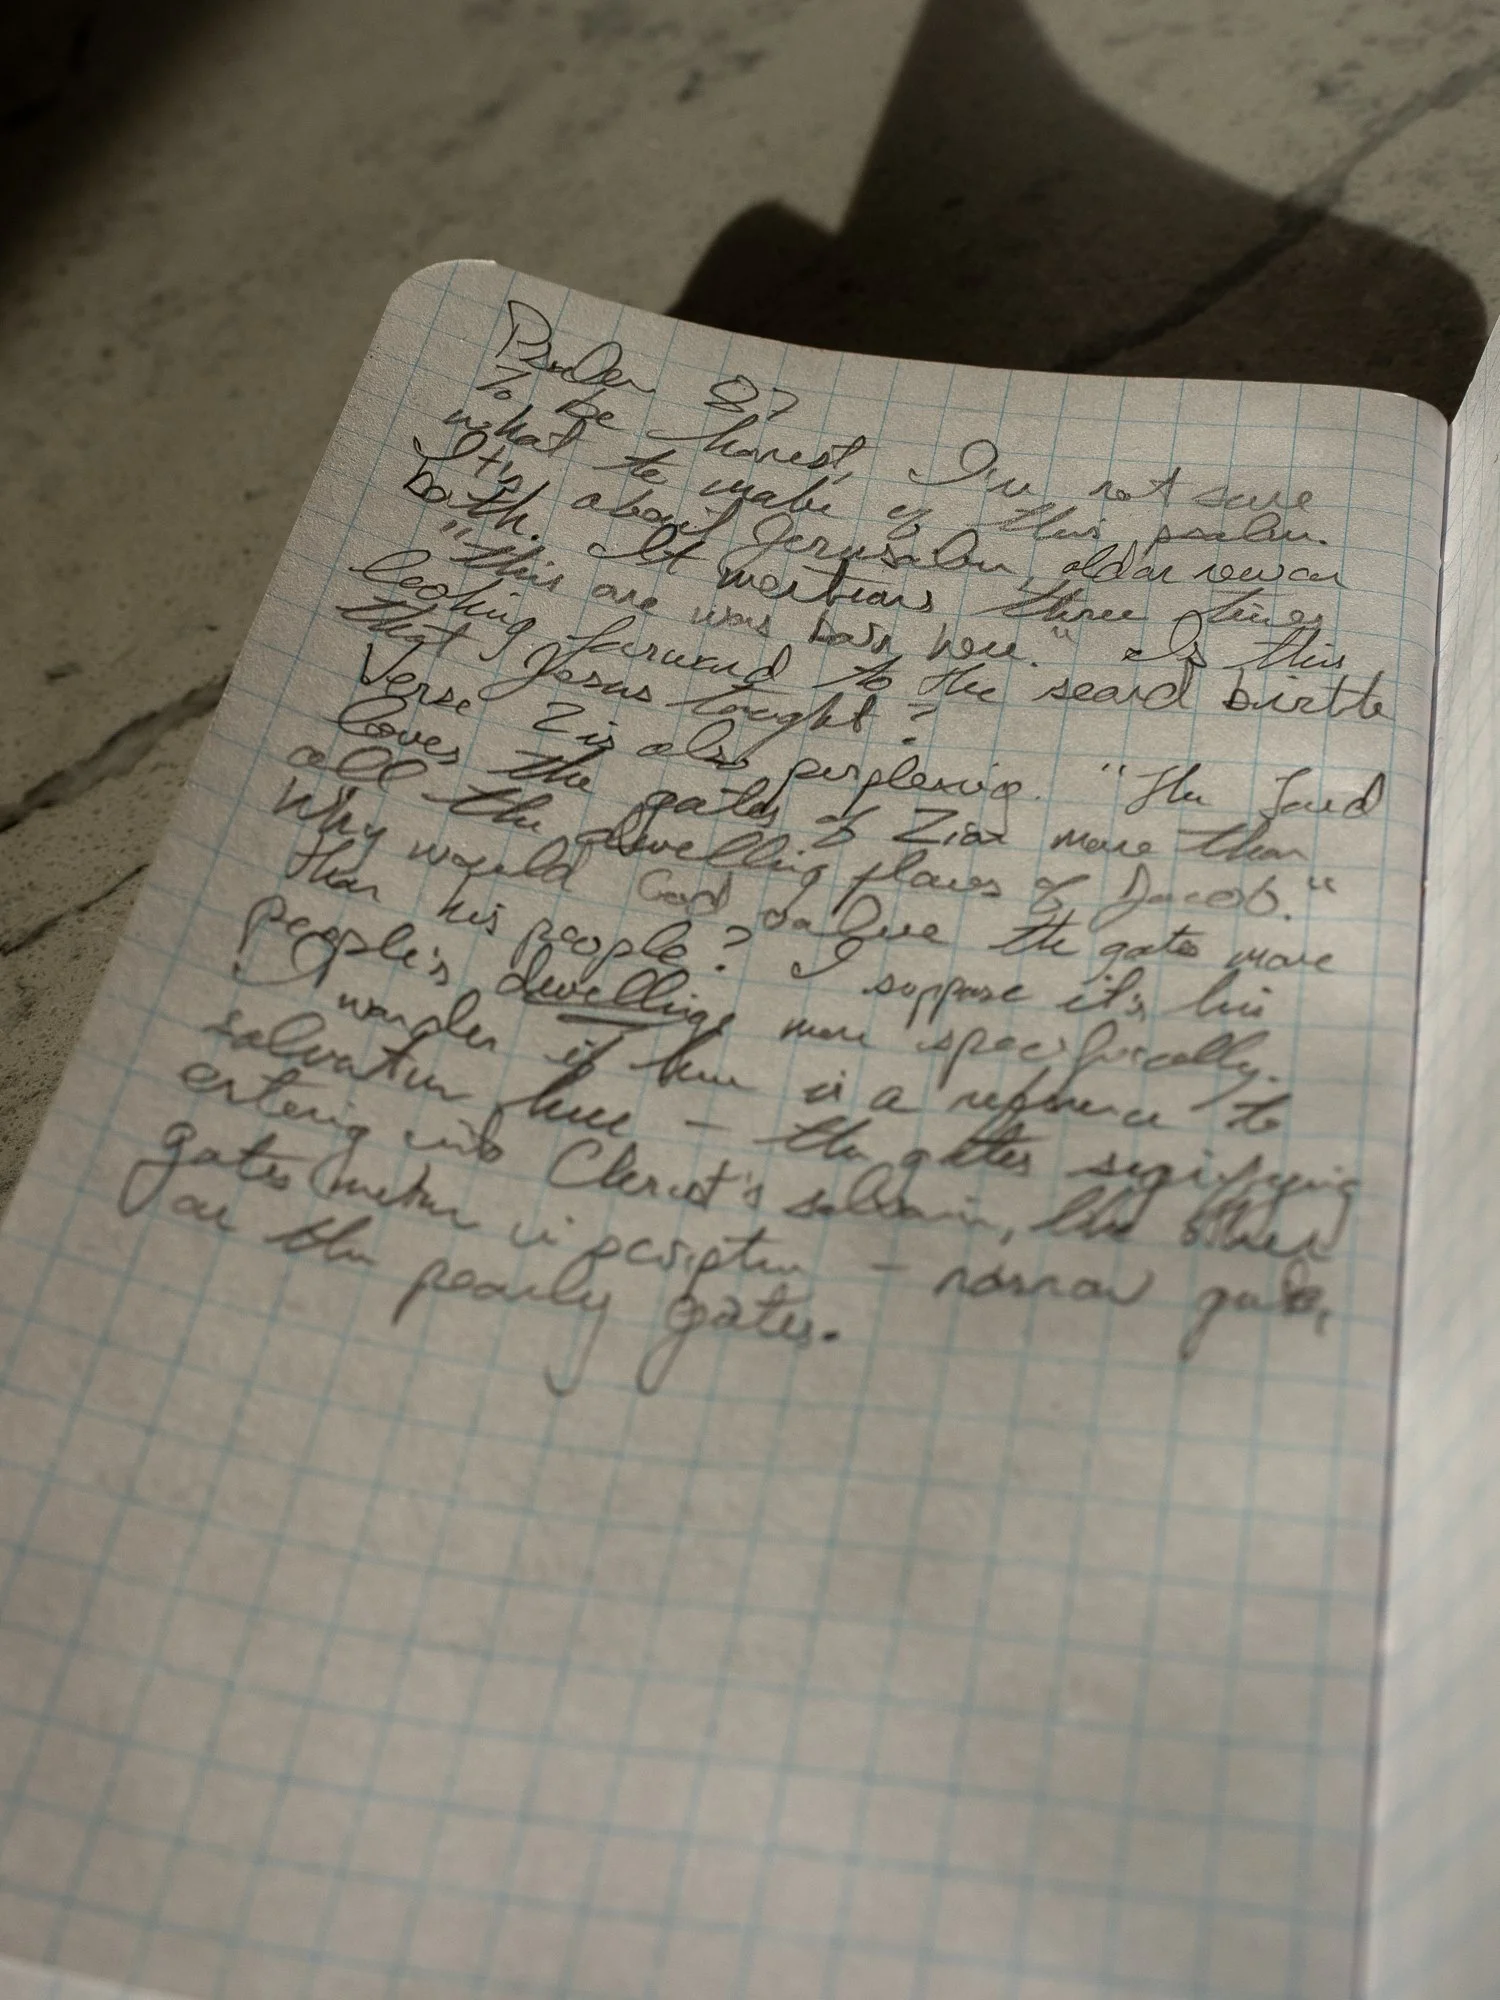 Psalm 87
To be honest, I'm not sure
what to make of this psalm.
It's about Jerusalem, old or new or
both. It mentions three times
"this one was born here." Is this
looking forward to the second birth
that Jesus taught?
Verse 2 is also perplexing. "The Lord
loves the gates of Zion more than
all the dwelling places of Jacob."
Why would God value the gates more
than his people? I suppose it's his
people's dwellings more specifically.
I wonder if there is a reference to
salvation here – the gates signifying
entering into Christ's salvation, like other
gates metaphor in scripture – narrow gate,
or the pearly gates.